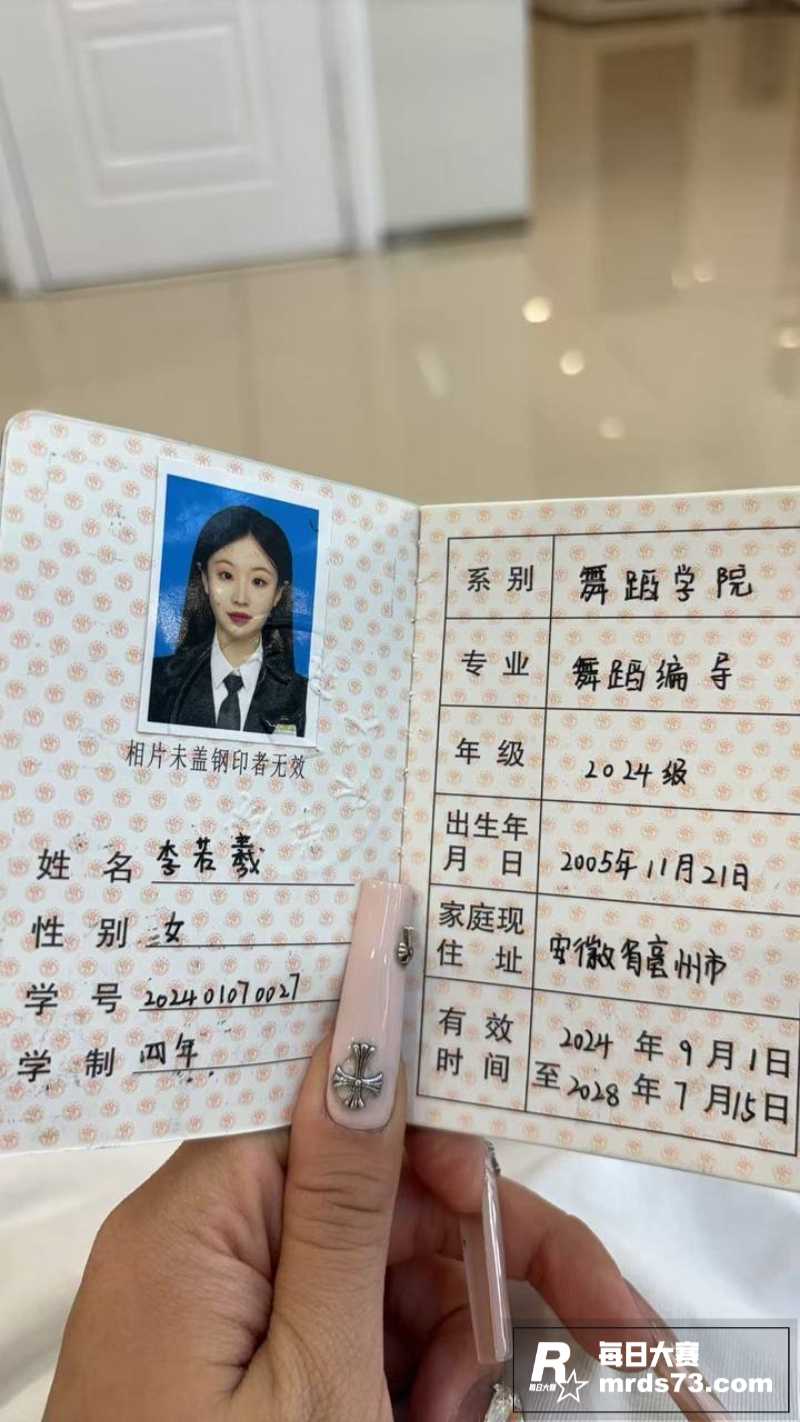 相片未盖钢印者无效
姓 名 李若羲
性 别 女
学 号 202401070027
学 制 四年
系 别 舞蹈学院
专 业 舞蹈编导
年 级 2024级
出生年
月 日 2005年11月21日
家庭现
住 址 安徽省亳州市
有 效 2024年9月1日
时 间 至2028年7月15日
R 每日大赛
每日大赛 mrds73.com